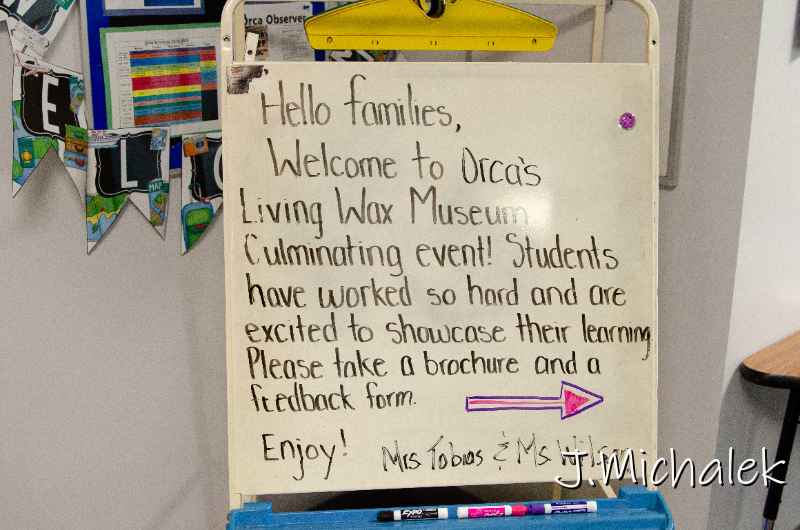 Orca Observer
E
L
MAP
Hello families,
Welcome to Orca's
Living Wax Museum
Culminating event! Students
have worked so hard and are
excited to showcase their learning
Please take a brochure and a
feedback form.
Enjoy! Mrs Tobias & Ms
J.Michalek
EXPO